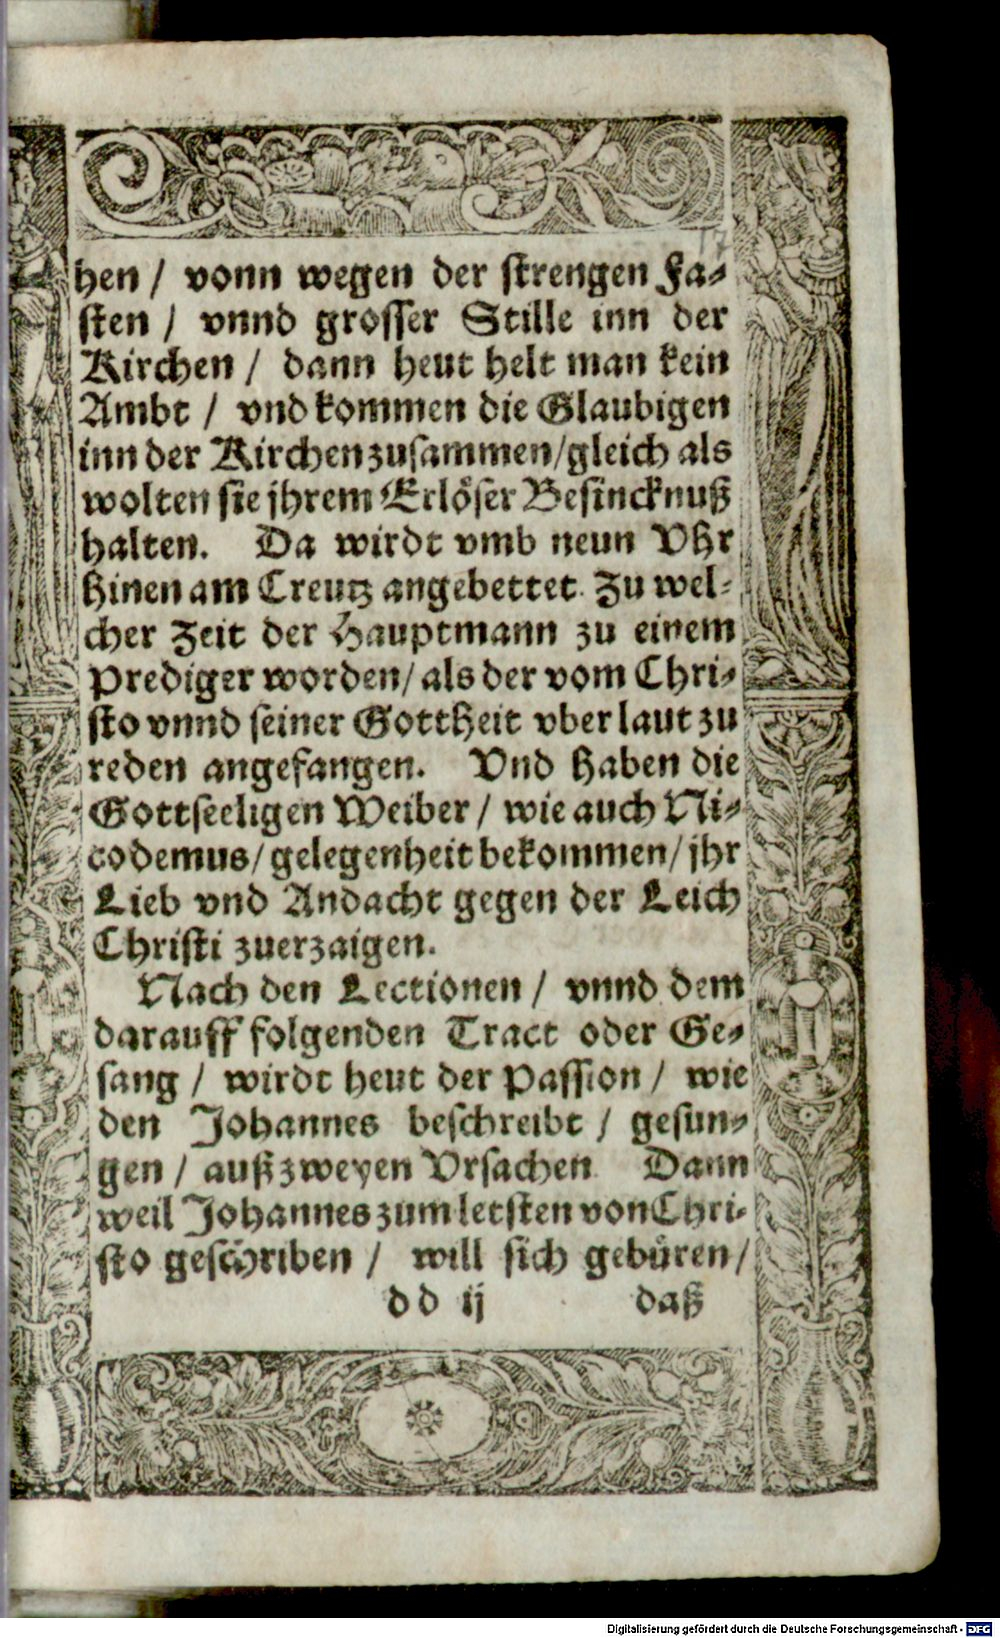 17
hen / vonn wegen der strengen Fa-
sten / vnnd grosser Stille inn der
Kirchen / dann heut helt man kein
Ambt / vnd kommen die Glaubigen
inn der Kirchen zusammen / gleich als
wolten sie jhrem Erlöser Besincknuß
halten. Da wirdt vmb neun Vhr
hinen am Creutz angebettet. Zu wel-
cher Zeit der Hauptmann zu einem
Prediger worden / als der vom Chri-
sto vnnd seiner Gottheit vber laut zu
reden angefangen. Vnd haben die
Gottseeligen Weiber / wie auch Ni-
codemus / gelegenheit bekommen / jhr
Lieb vnd Andacht gegen der Leich
Christi zuerzaigen.
Nach den Lectionen / vnnd dem
darauff folgenden Tract oder Ge-
sang / wirdt heut der Passion / wie
den Johannes beschreibt / gesun-
gen / auß zweyen Vrsachen Dann
weil Johannes zum letsten von Chri-
sto geschriben / will sich gebüren /
dd ij daß
Digitalisierung gefördert durch die Deutsche Forschungsgemeinschaft - DFG